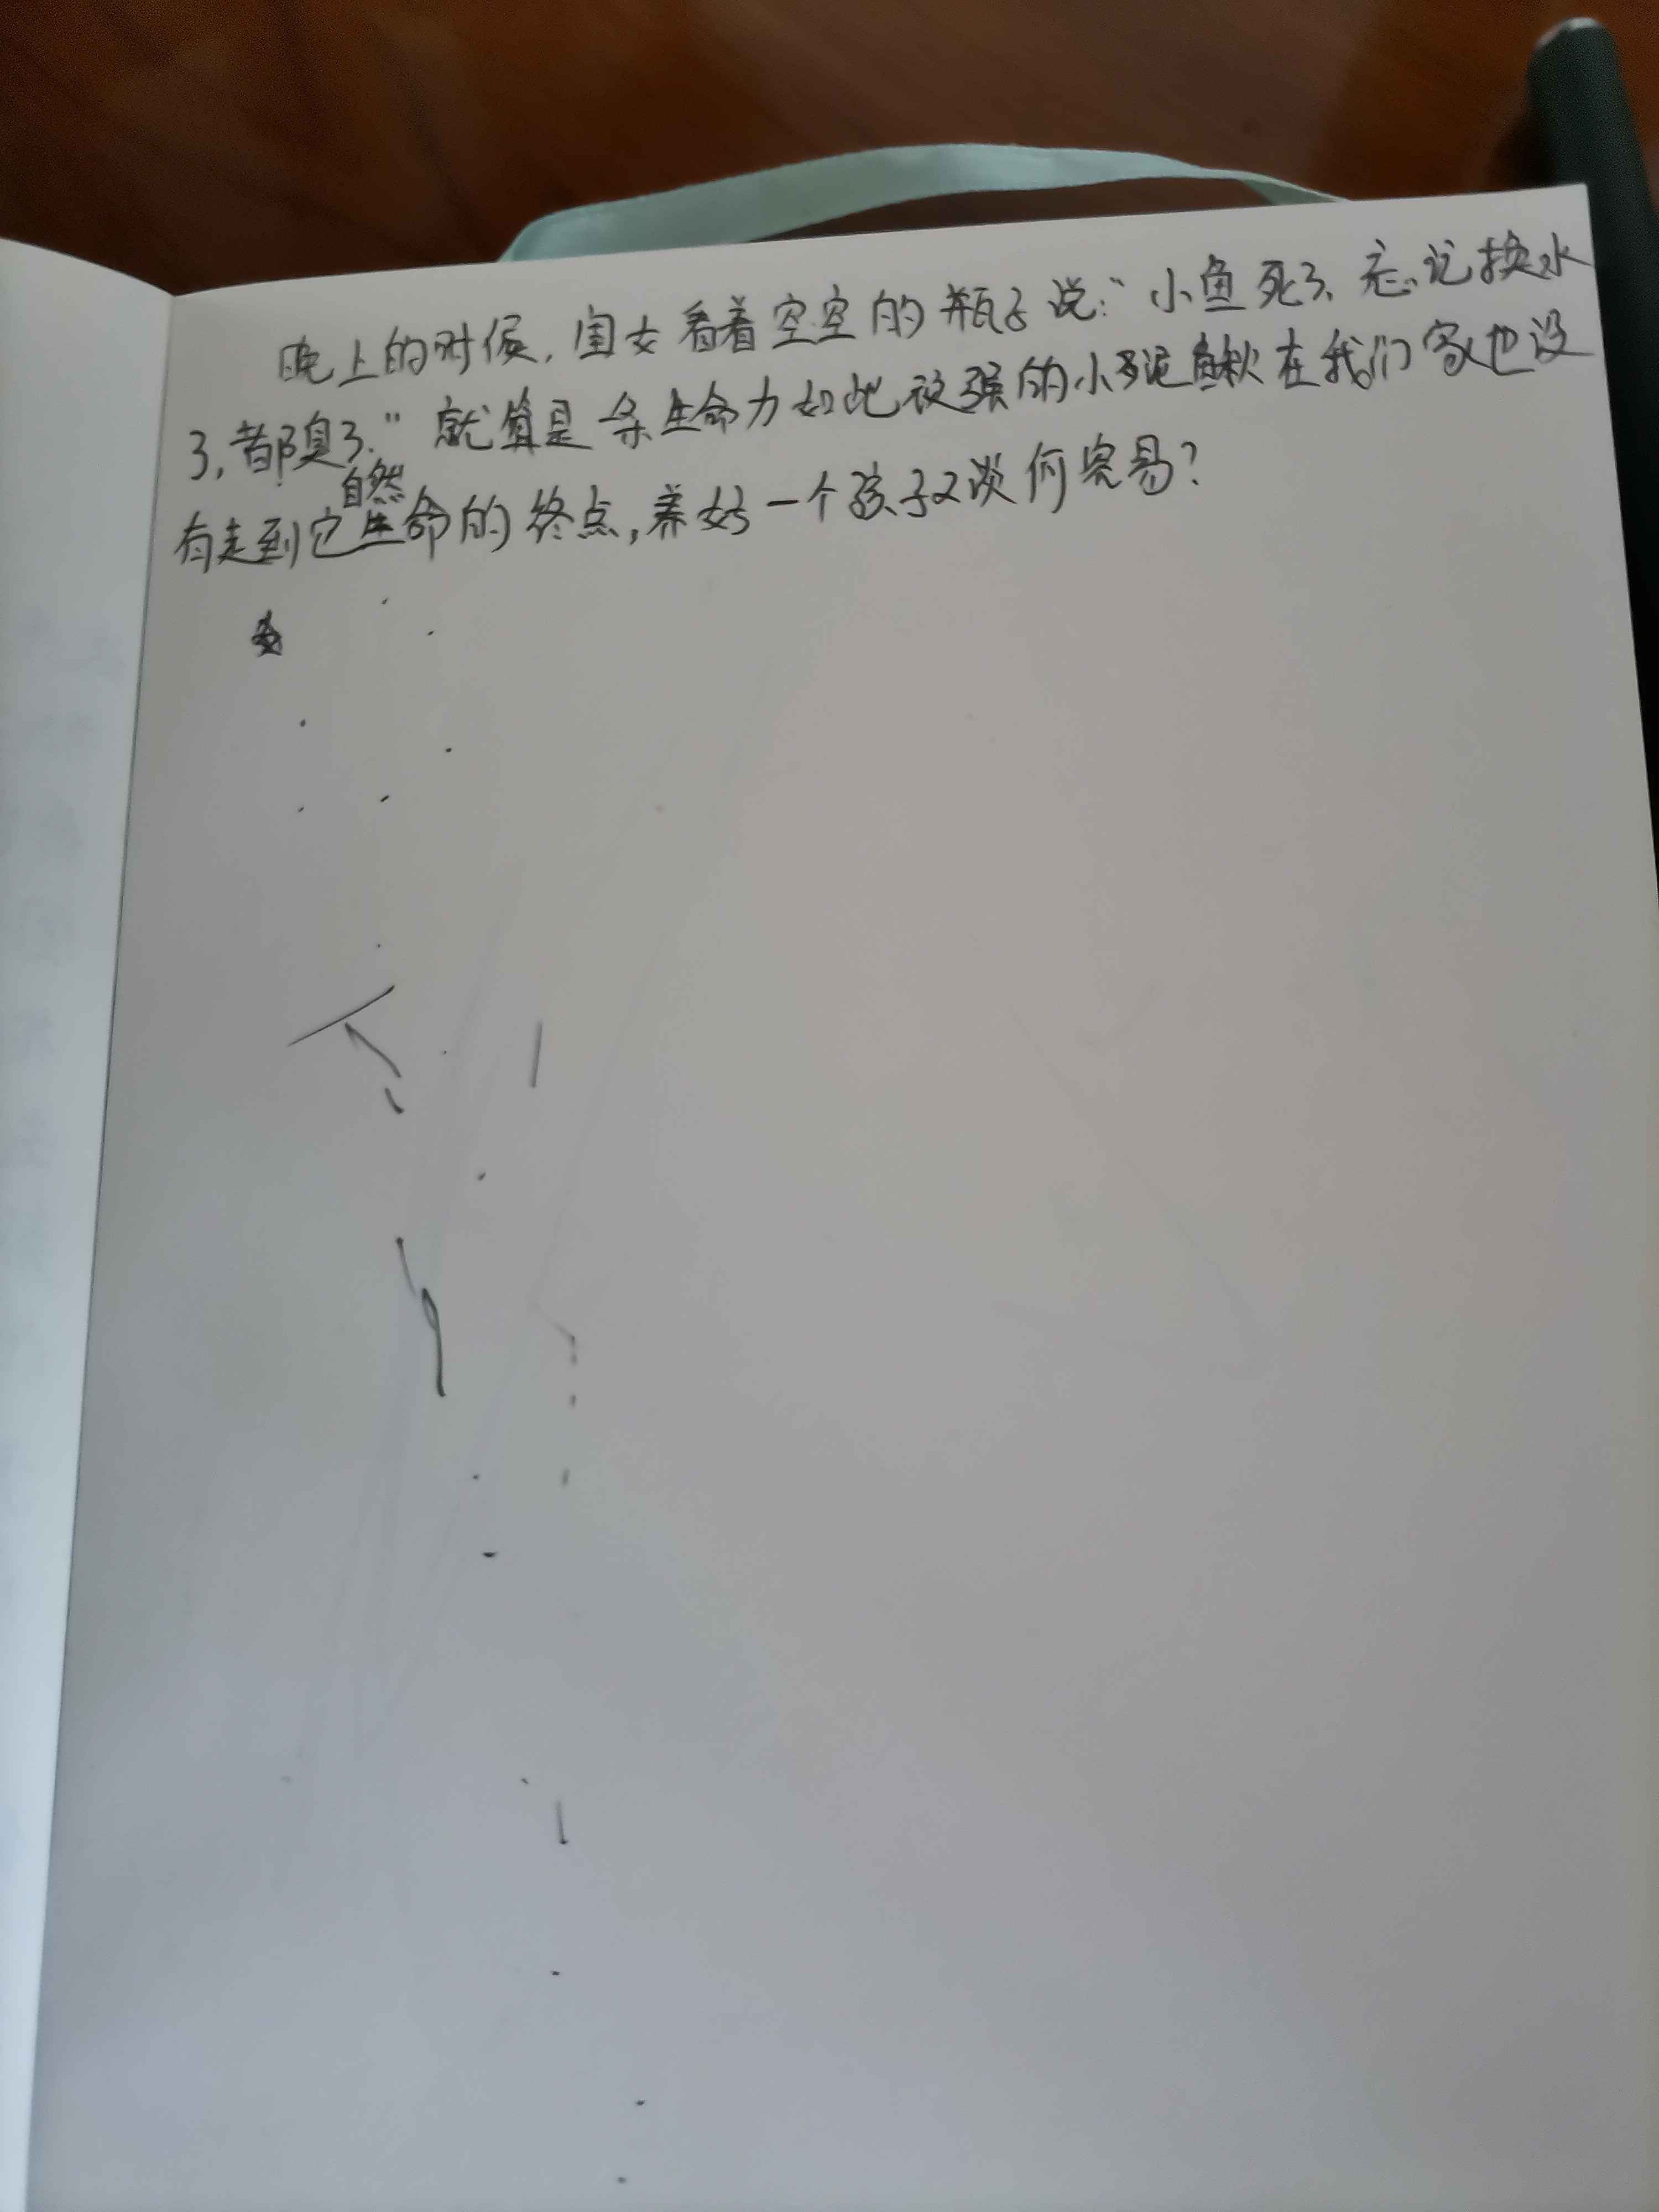 晚上的时候,闺女看着空空的瓶子说:“小鱼死了、忘记换水
了,都臭了.”就算是一条生命力如此顽强的小泥鳅在我们家也没
有走到它自然生命的终点,养好一个孩子又谈何容易?